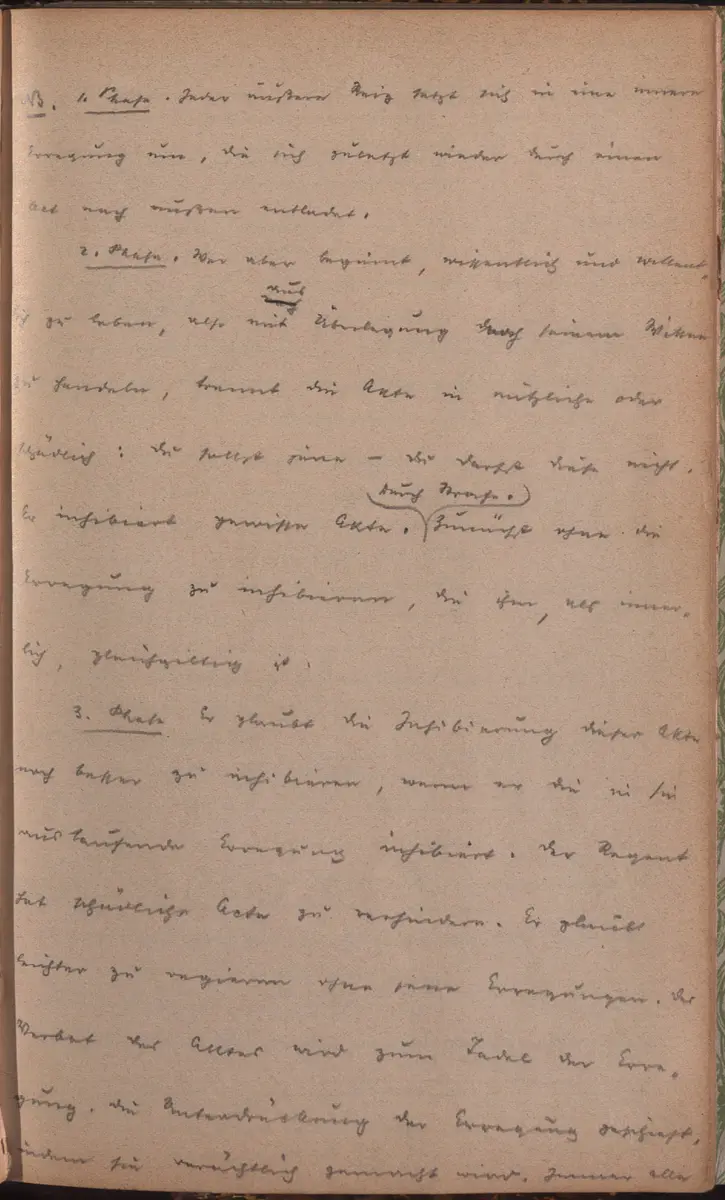 NB. 1. Phase. Jeder äußere Reiz setzt sich in eine innere
Erregung um, die sich zuletzt wieder durch einen
Act nach außen entladet.
2. Phase. Wer aber beginnt, wissentlich und willent-
lich zu leben, also mit Überlegung
aus
seinem Willen
zu handeln, trennt die Akte in nützliche oder
schädlich: du sollst jene – du darfst diese nicht.
(durch Strafe.)
Er inhibiert gewisse Akte. Zunächst ohne die
Erregung zu inhibieren, die ihm, als inner-
lich, gleichgiltig ist.
3. Phase Er glaubt die Inhibierung dieser Akte
noch besser zu inhibieren, wenn er die in sie
auslaufende Erregung inhibiert. Der Regent
hat schädliche Acte zu verhindern. Er glaubt
leichter zu regieren ohne jene Erregungen. Das
Verbot des Aktes wird zum Tadel der Erre-
gung. Die Unterdrückung der Erregung geschieht,
indem sie verächtlich gemacht wird. Immer alle